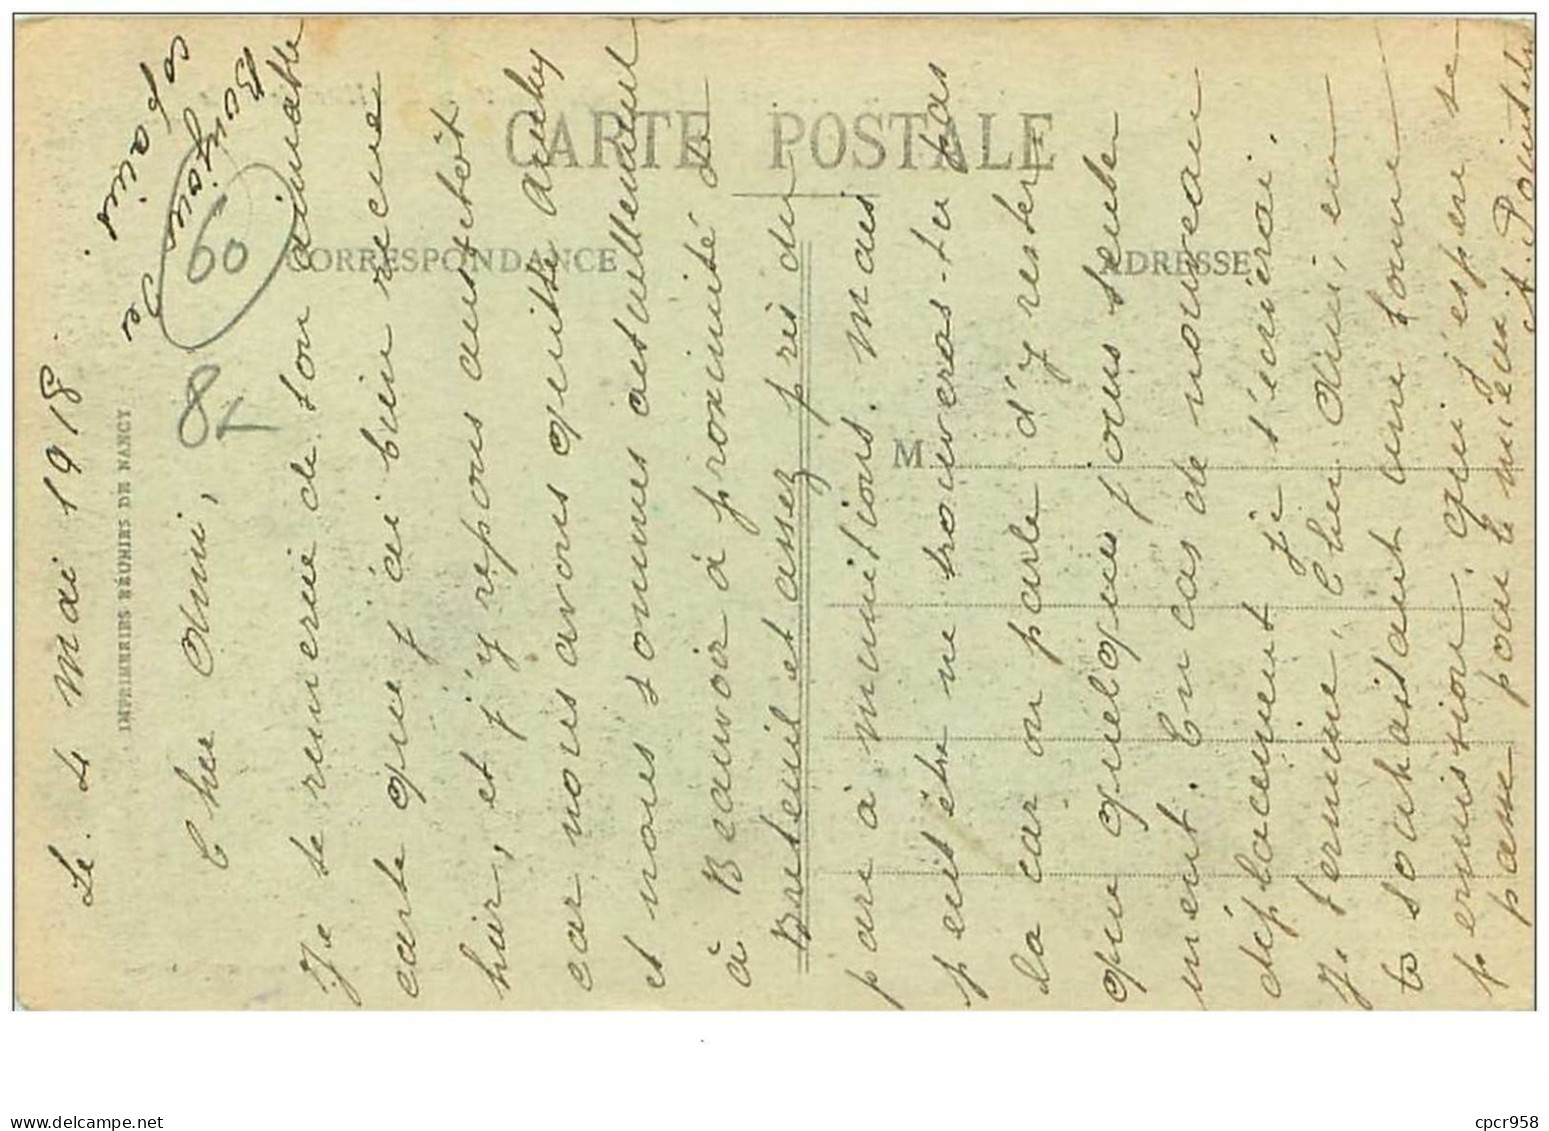 CARTE POSTALE
CORRESPONDANCE
ADRESSE
M
IMPRIMERIES RÉUNIES DE NANCY
60
8
Le 4 Mai 1918
Bonjour
copains
Cher Ami,
Je te remercie de ton aimable
carte que j'ai bien reçue
hier, et j'y répons aussitôt
car nous avons quitté Auchy
et nous sommes actuellement
à Beauvoir à proximité de
Breteuil et assez près du
parc à munitions. Mais
peut être ne trouveras-tu pas
là car on parle d'y rester
que quelques jours seule
ment. En cas de nouveau
déplacement je t'écrirai.
Je termine, Cher Ami, en
te souhaitant une bonne
permission, qui j'espère se
passe pour le mieux.
cpcr958